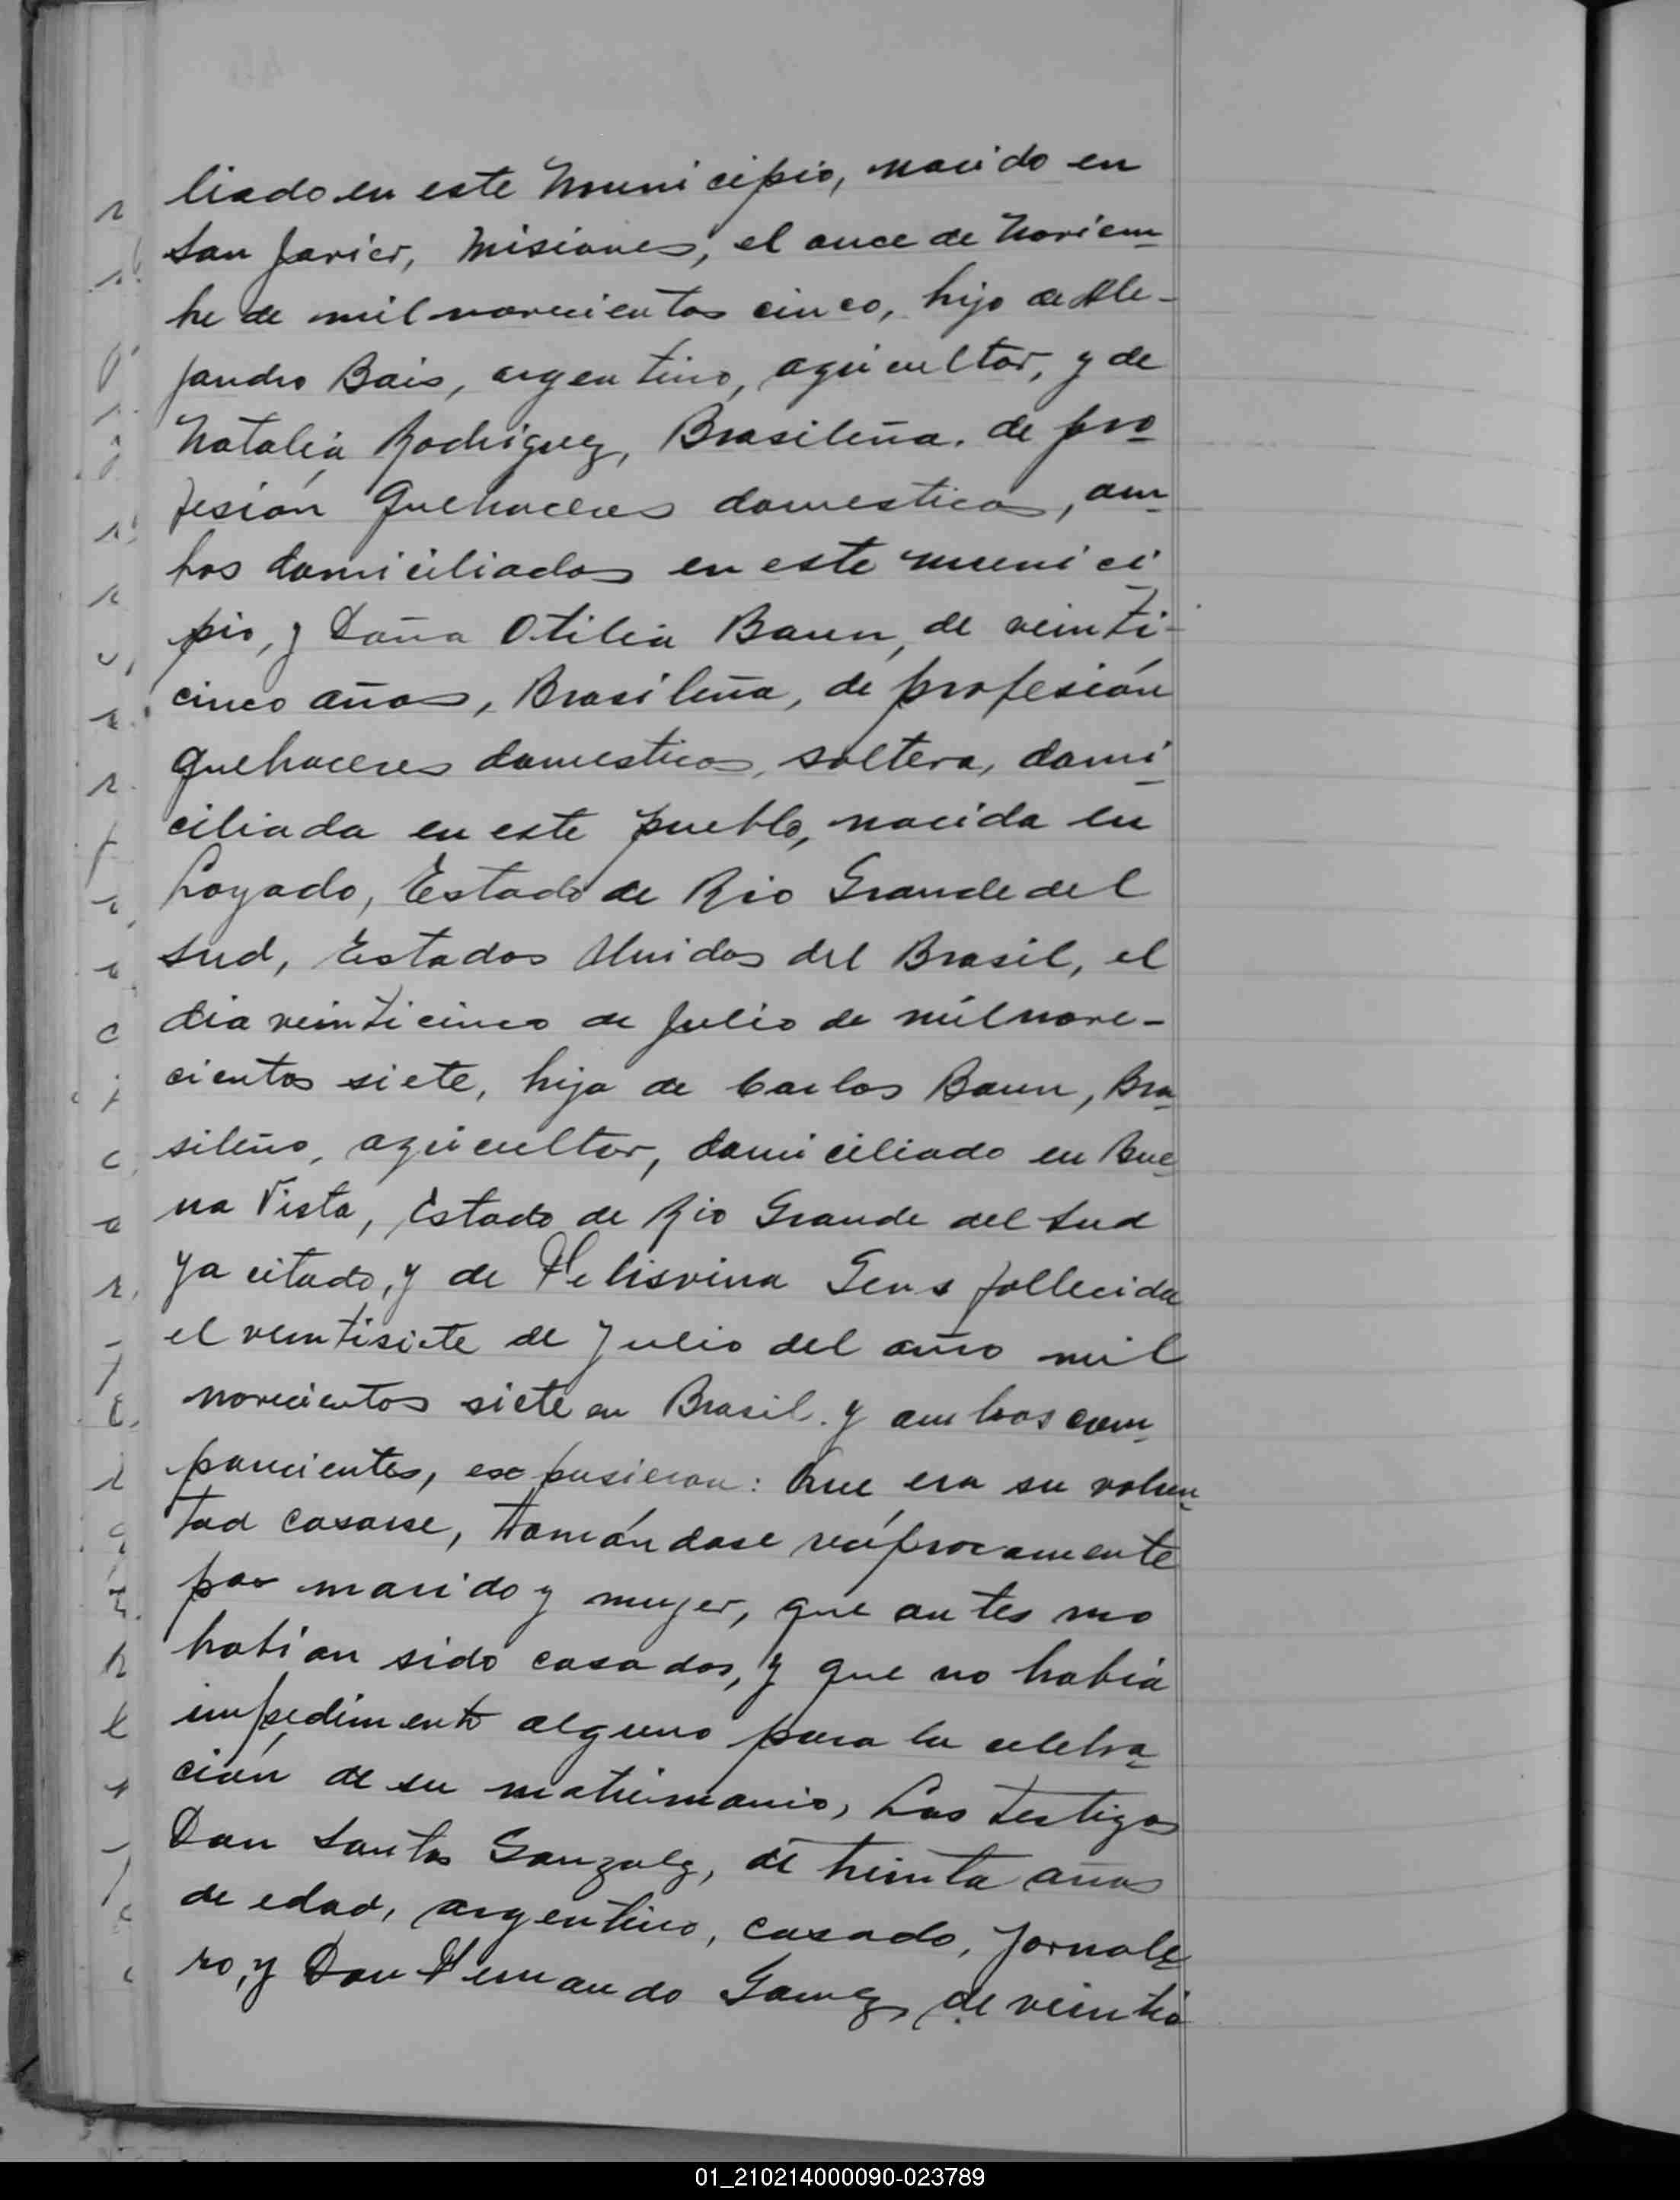 liado en este Municipio, nacido en
San Javier, Misiones, el once de Noviem_
bre de mil novecientos cinco, hijo de Ale-
jandro Bais, argentino, agricultor, y de
Natalia Rodriguez, Brasileña, de pro_
fesión quehaceres domesticos, am_
bos domiciliados en este munici_
pio, y Doña Otilia Baun, de veinti-
cinco años, Brasileña, de profesión
quehaceres domesticos, soltera, domi_
ciliada en este pueblo, nacida en
Loyado, Estado de Rio Grande del
Sud, Estados Unidos del Brasil, el
dia veinticinco de Julio de mil nove-
cientos siete, hija de Carlos Baun, Bra_
sileño, agricultor, domiciliado en Bue_
na Vista, Estado de Rio Grande del Sud
ya citado, y de Felisvina Gens fallecida
el veintisiete de Julio del año mil
novecientos siete en Brasil. y ambos com_
parecientes, expusieron: Que era su volun_
tad casarse, tomándose recíprocamente
por marido y mujer, que antes no
habian sido casados, y que no había
impedimento alguno para la celebra_
ción de su matrimonio, Los testigos
Don Santos Gonzalez, de treinta años
de edad, argentino, casado, jornale_
ro, y Don Fernando Gomez, de veintio
01_210214000090-023789